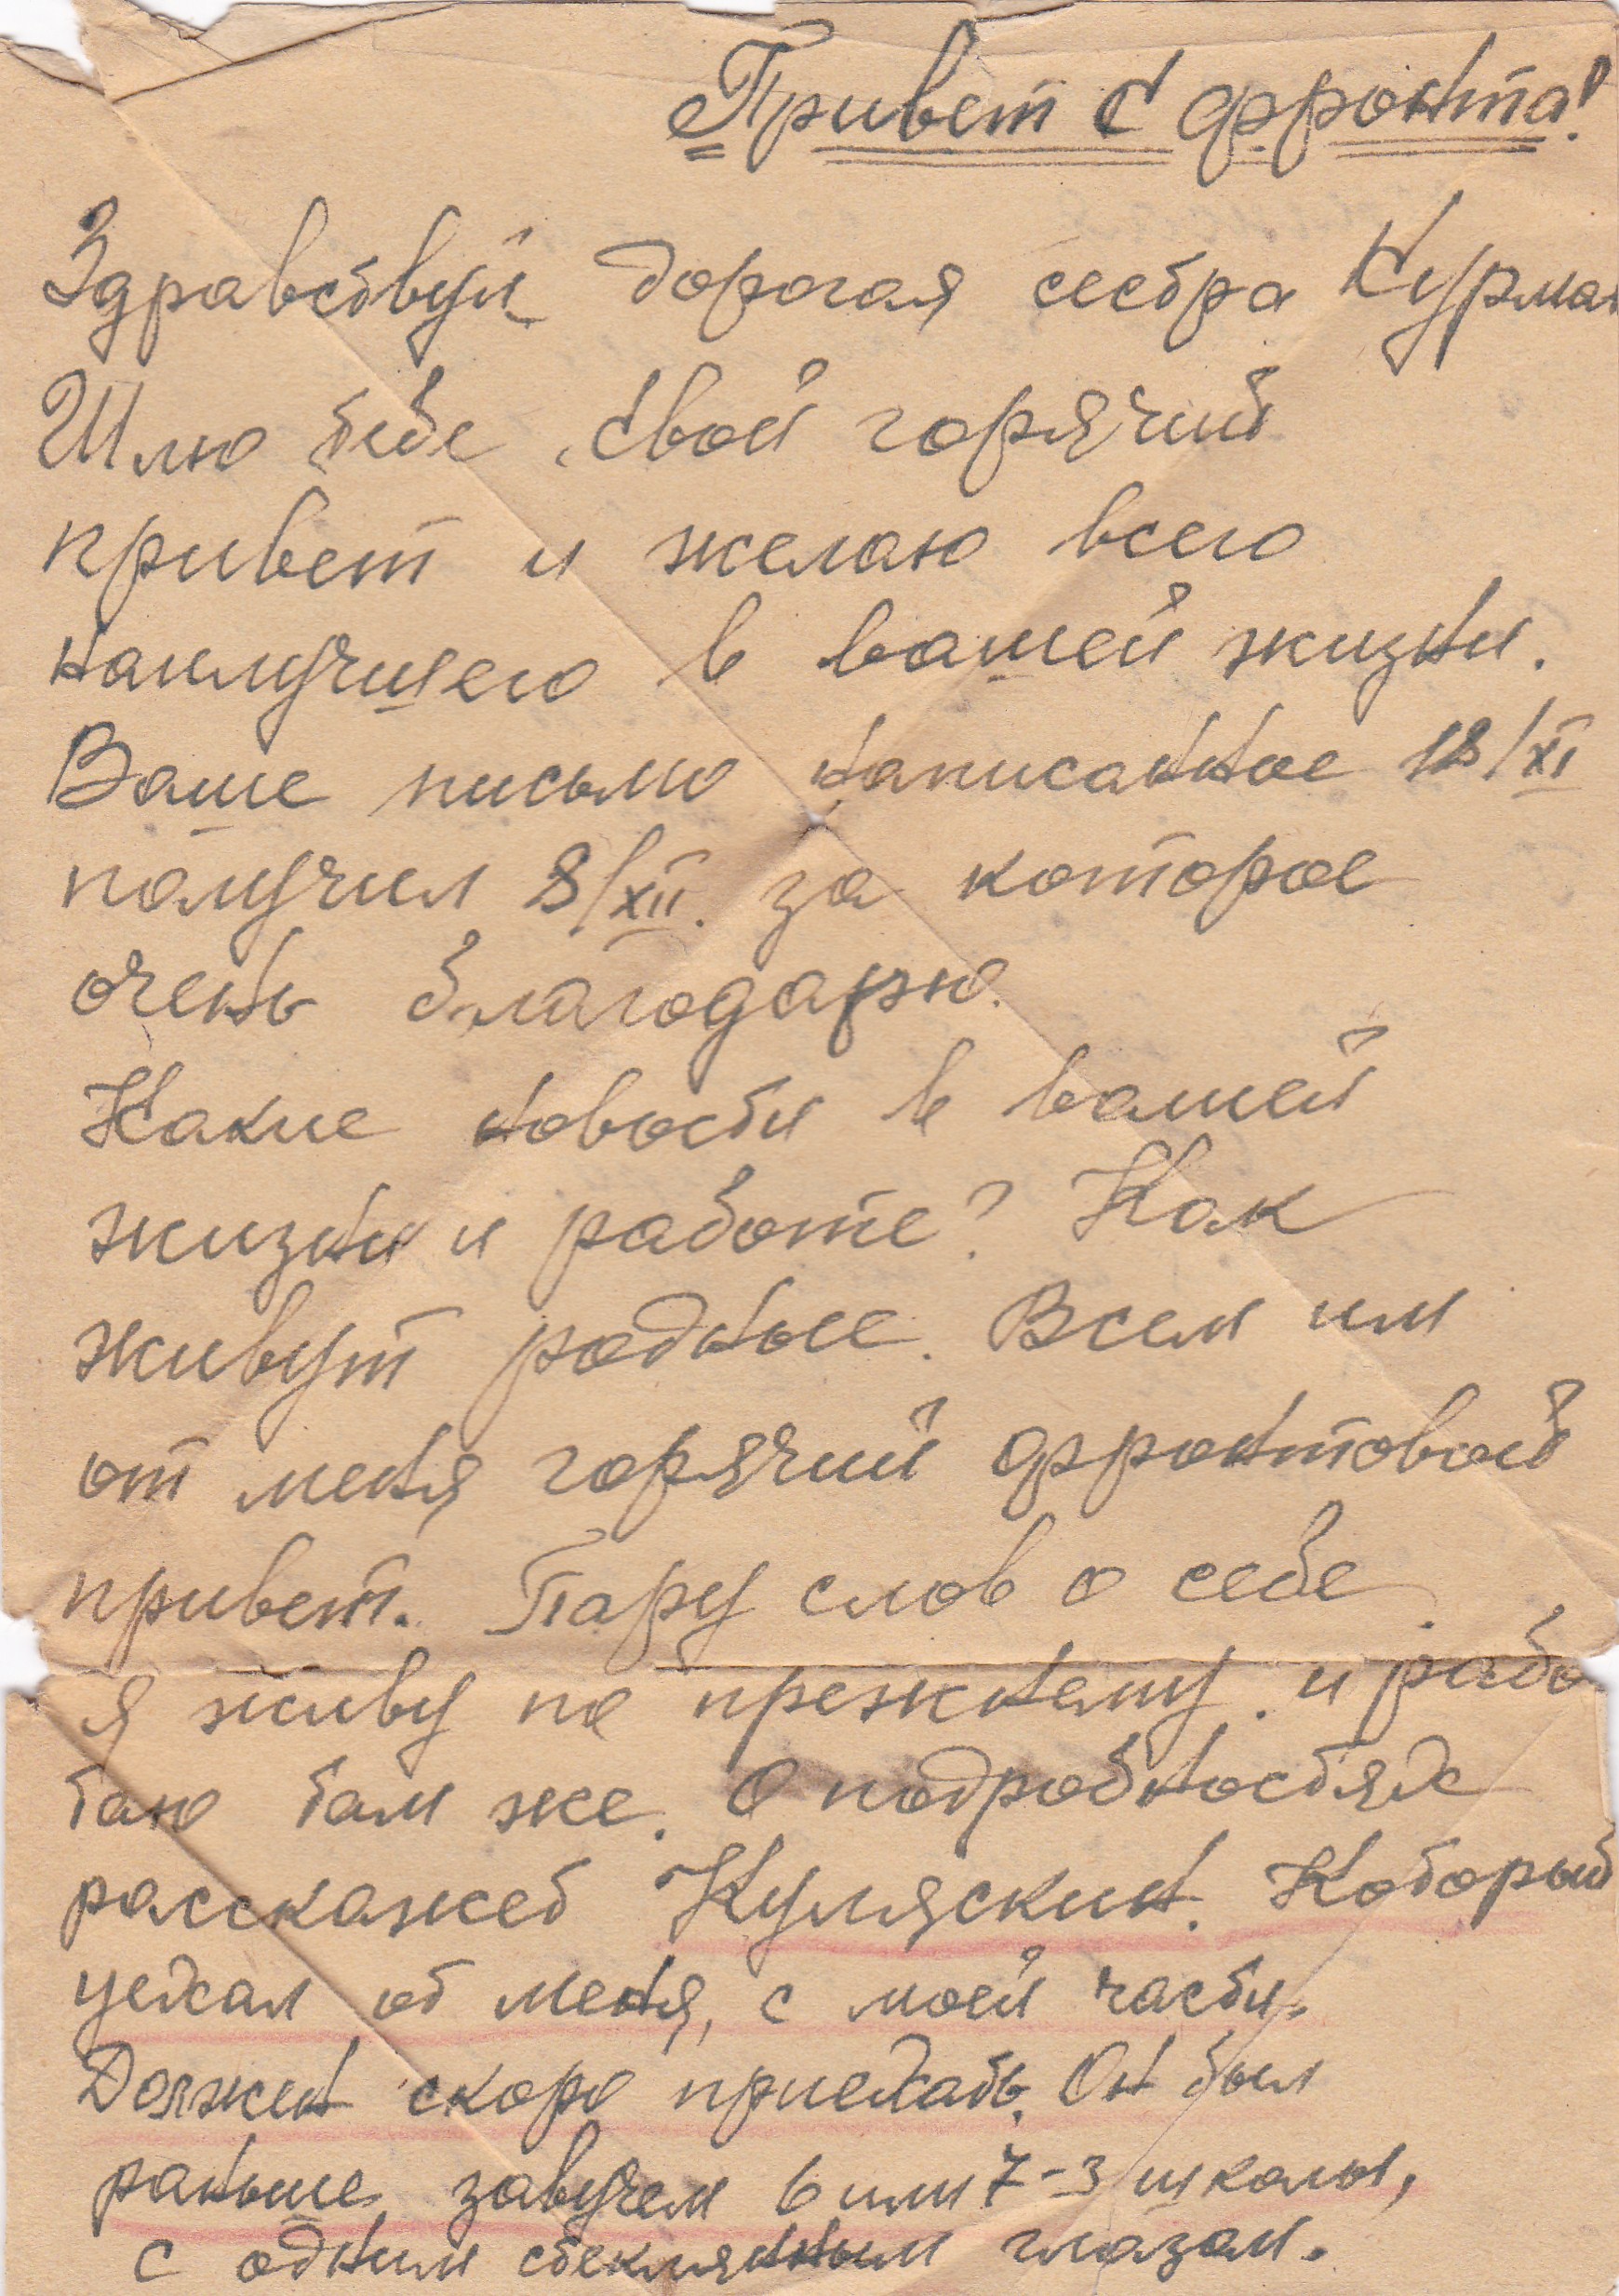 Привет с фронта!
Здравствуй дорогая сестра
Шлю тебе свой горячий
привет и желаю всего
наилучшего в вашей жизни.
Ваше письмо написанное 18/XI
получил 8/XII. за которое
очень благодарю.
Какие новости в вашей
жизни и работе? Как
живут родные. Всем им
от меня горячий фронтовой
привет. Пару слов о себе.
я живу по прежнему. и рабо
таю там же. О подробностях
расскажет Куляскин. Который
уехал от меня, с моей части.
Должен скоро приехать. Он был
раньше завучем 6 или 7-з школы,
с одним стеклянным глазом.